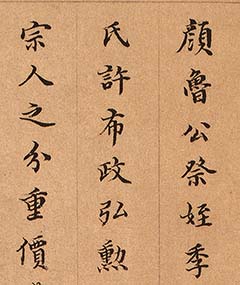 顏魯公祭姪季
氏許布政弘勲
宗人之分重價